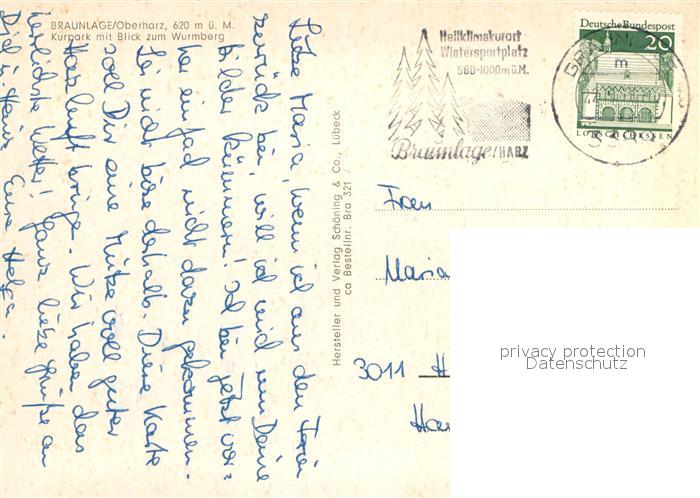 BRAUNLAGE/Oberharz, 620 m ü. M.
Kurpark mit Blick zum Wurmberg
Liebe Maria, wenn ich aus den Ferien
zurück bin, will ich mich um Deine
Bilder kümmern! Ich bin jetzt vor-
her einfach nicht dazu gekommen.
Sei nicht böse deshalb. Diese Karte
soll Dir eine Mütze voll guter
Harzluft bringen. Wir haben das
herrlichste Wetter! Ganz liebe Grüße an
Dich u. Hans Eure Helga.
Hersteller und Verlag Schöning & Co., Lübeck
ca Bestellnr. Bra 321
Heilklimakurort
Wintersportplatz
560-1000m ü.M.
Braunlage/HARZ
Deutsche Bundespost
20
m
Frau
Maria
3011 H
Han
privacy protection
Datenschutz